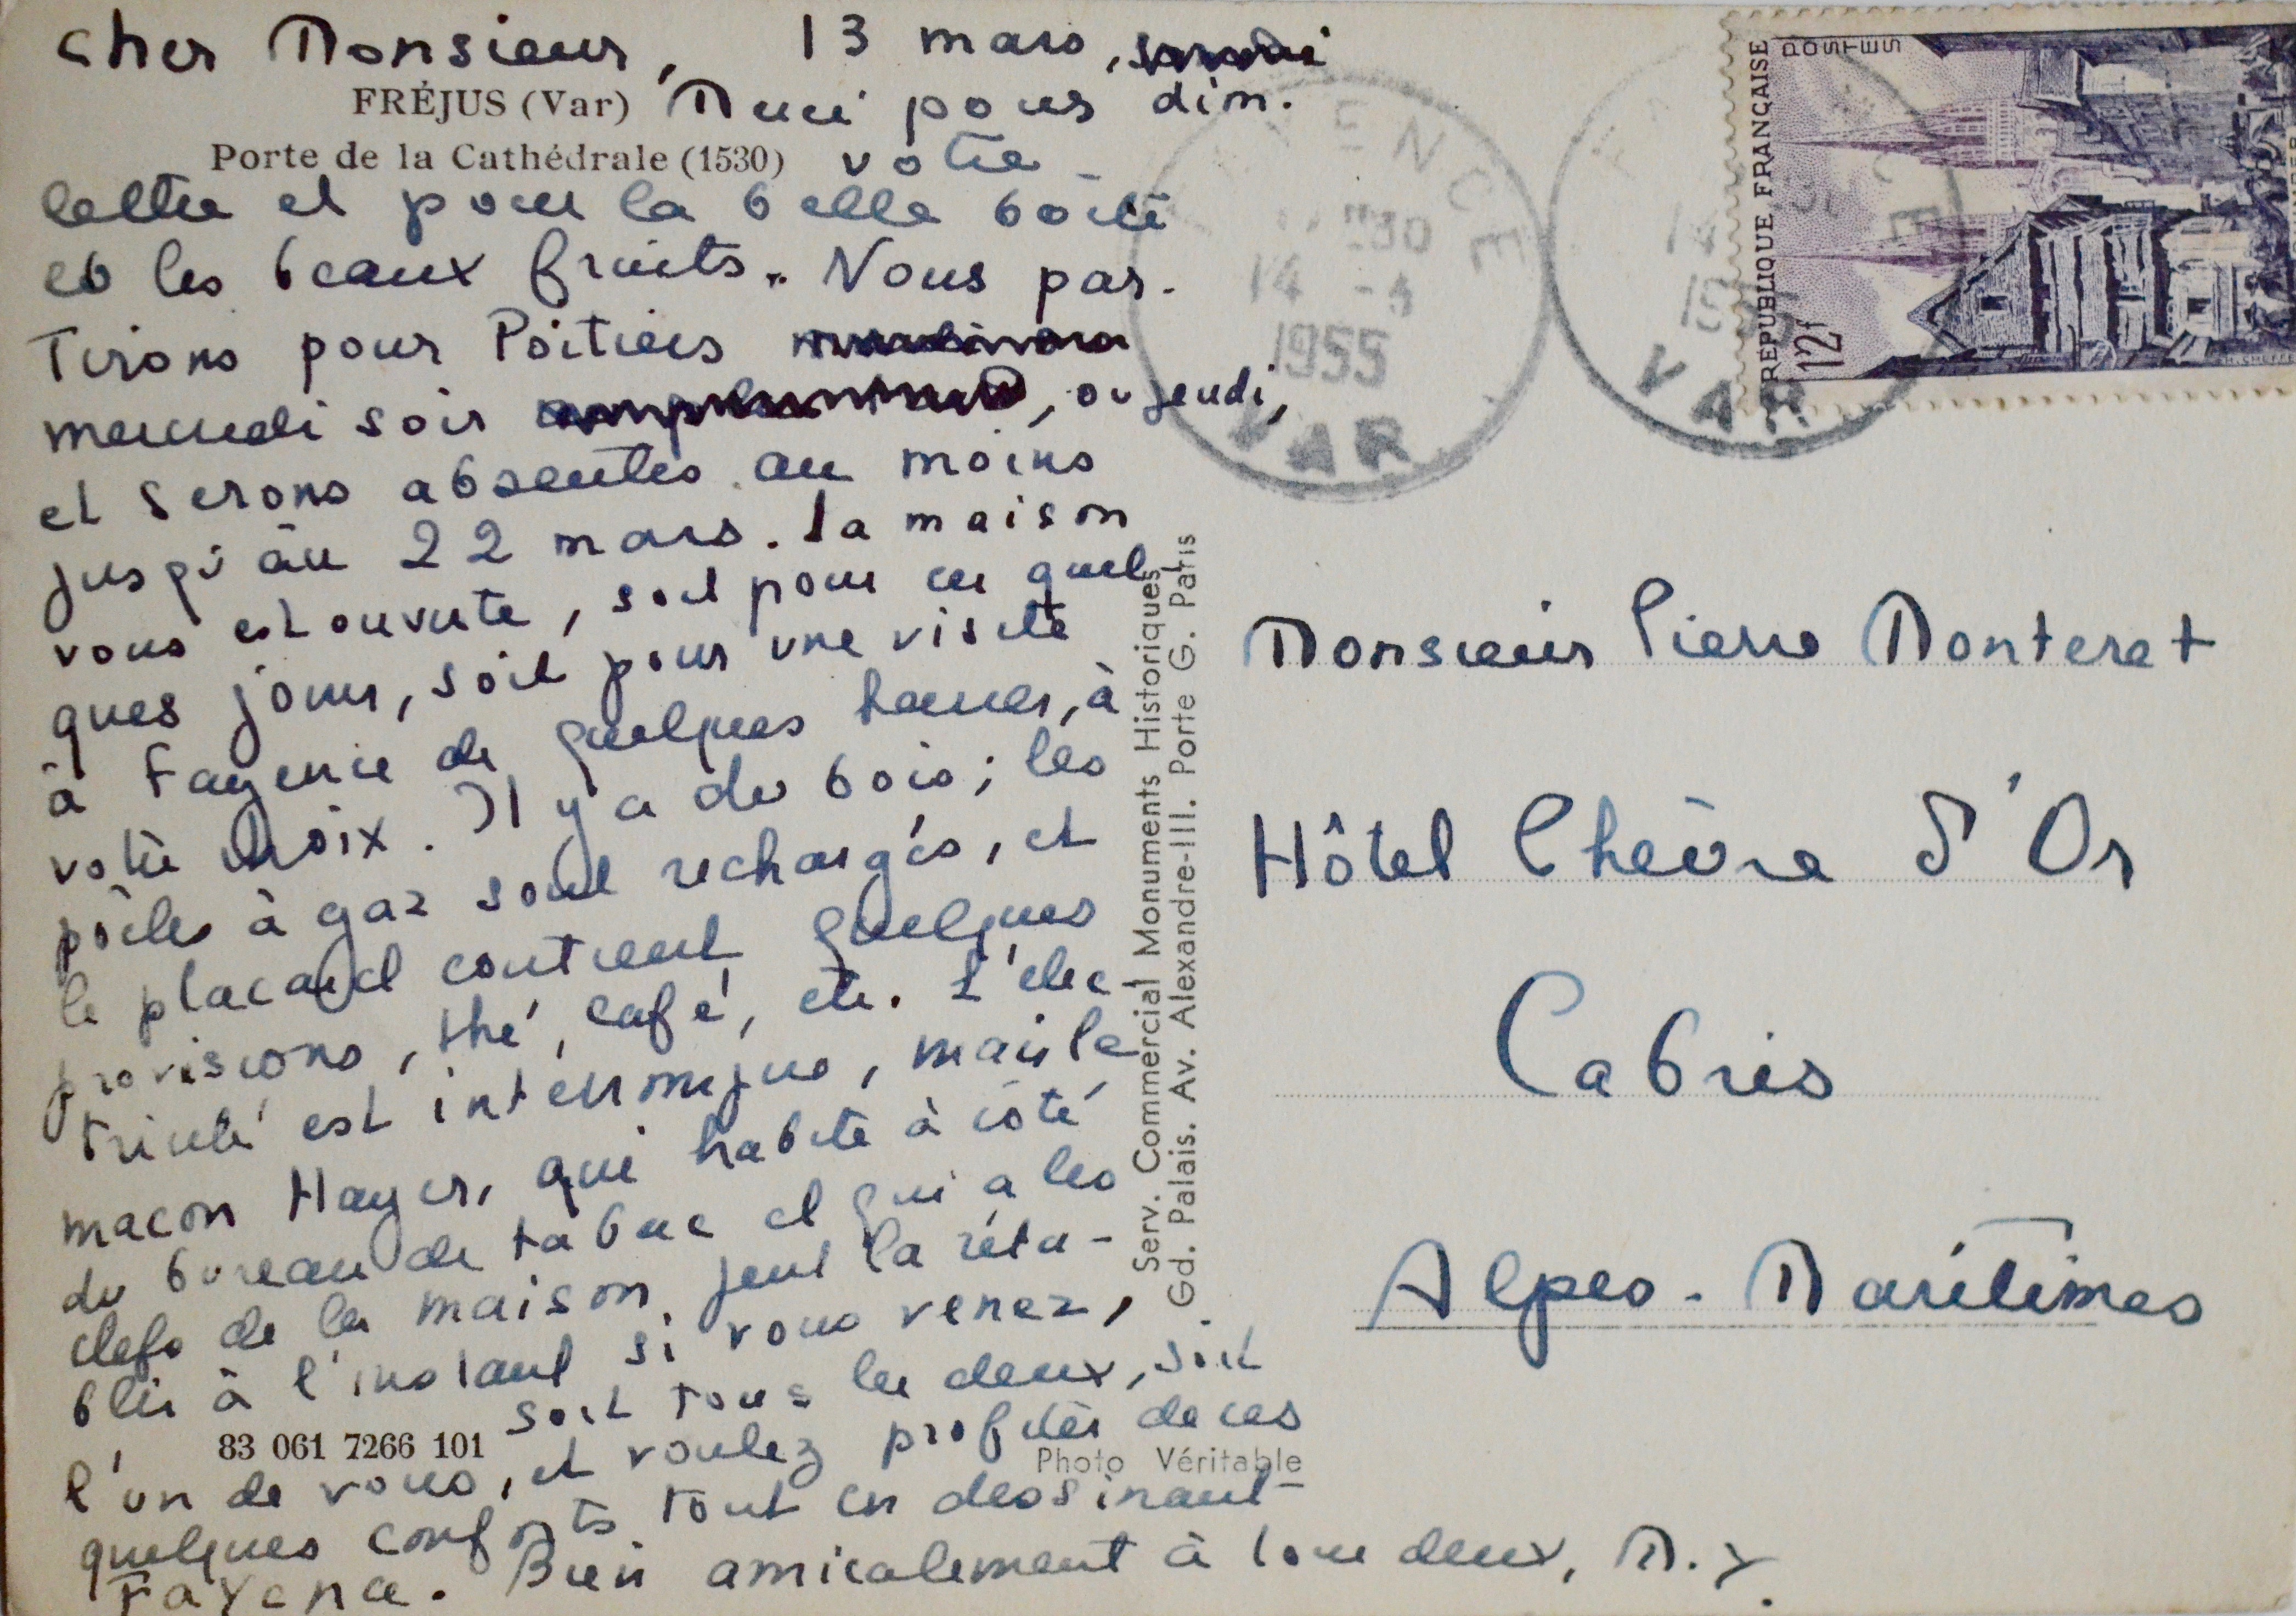 Cher Monsieur, 13 mars,
FRÉJUS (Var) Merci pour dim.
Porte de la Cathédrale (1530) votre
lettre et pour la belle boîte
et les beaux fruits. Nous par-
tirons pour Poitiers
mercredi soir , ou jeudi,
et serons absentes au moins
jusqu'au 22 mars. la maison
vous est ouverte, soit pour quel
ques jours, soit pour une visite
à Fayence de quelques heures, à
votre choix. Il y a du bois; les
pôeles à gaz sont rechargés, et
le placard contient quelques
provisions, thé, café, etc. L'élec-
tricité est interrompue, mais le
macon Hayer, qui habite à côté
du bureau de tabac et qui a les
clefs de la maison peut la réta-
blir à l'instant si vous venez,
soit tous les deux, soit
83 061 7266 101
l'un de vous, et voulez profiter de ces
Photo Véritable
quelques conforts tout en dessinant
Fayence. Bien amicalement à tous deux, M. Y.
Serv. Commercial Monuments Historiques
Gd. Palais. Av. Alexandre-III. Porte G. Paris
FAYENCE
14 -3
1955
VAR
VAR
RÉPUBLIQUE FRANÇAISE
POSTES
12f
Monsieur Pierre Monteret
Hôtel Chèvre d'Or
Cabris
Alpes-Maritimes